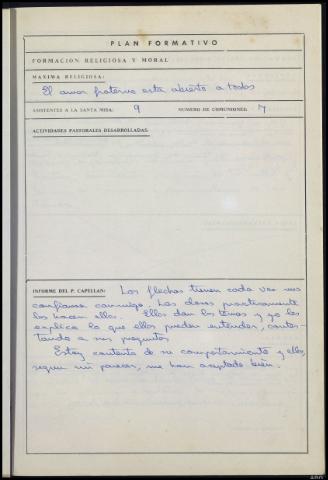 PLAN FORMATIVO
FORMACION RELIGIOSA Y MORAL
MAXIMA RELIGIOSA:
El amor fraterno está abierto a todos
ASISTENTES A LA SANTA MISA: 9 NUMERO DE COMUNIONES: 7
ACTIVIDADES PASTORALES DESARROLLADAS:
INFORME DEL P. CAPELLAN: Los flechas tienen cada vez mas
confianza conmigo. Las clases practicamente
las hacen ellos. Ellos dan los temas y yo les
explico lo que ellos pueden entender, contes-
tando a sus preguntas
Estoy contento de su comportamiento y ellos,
segun mi parecer, me han aceptado bien.